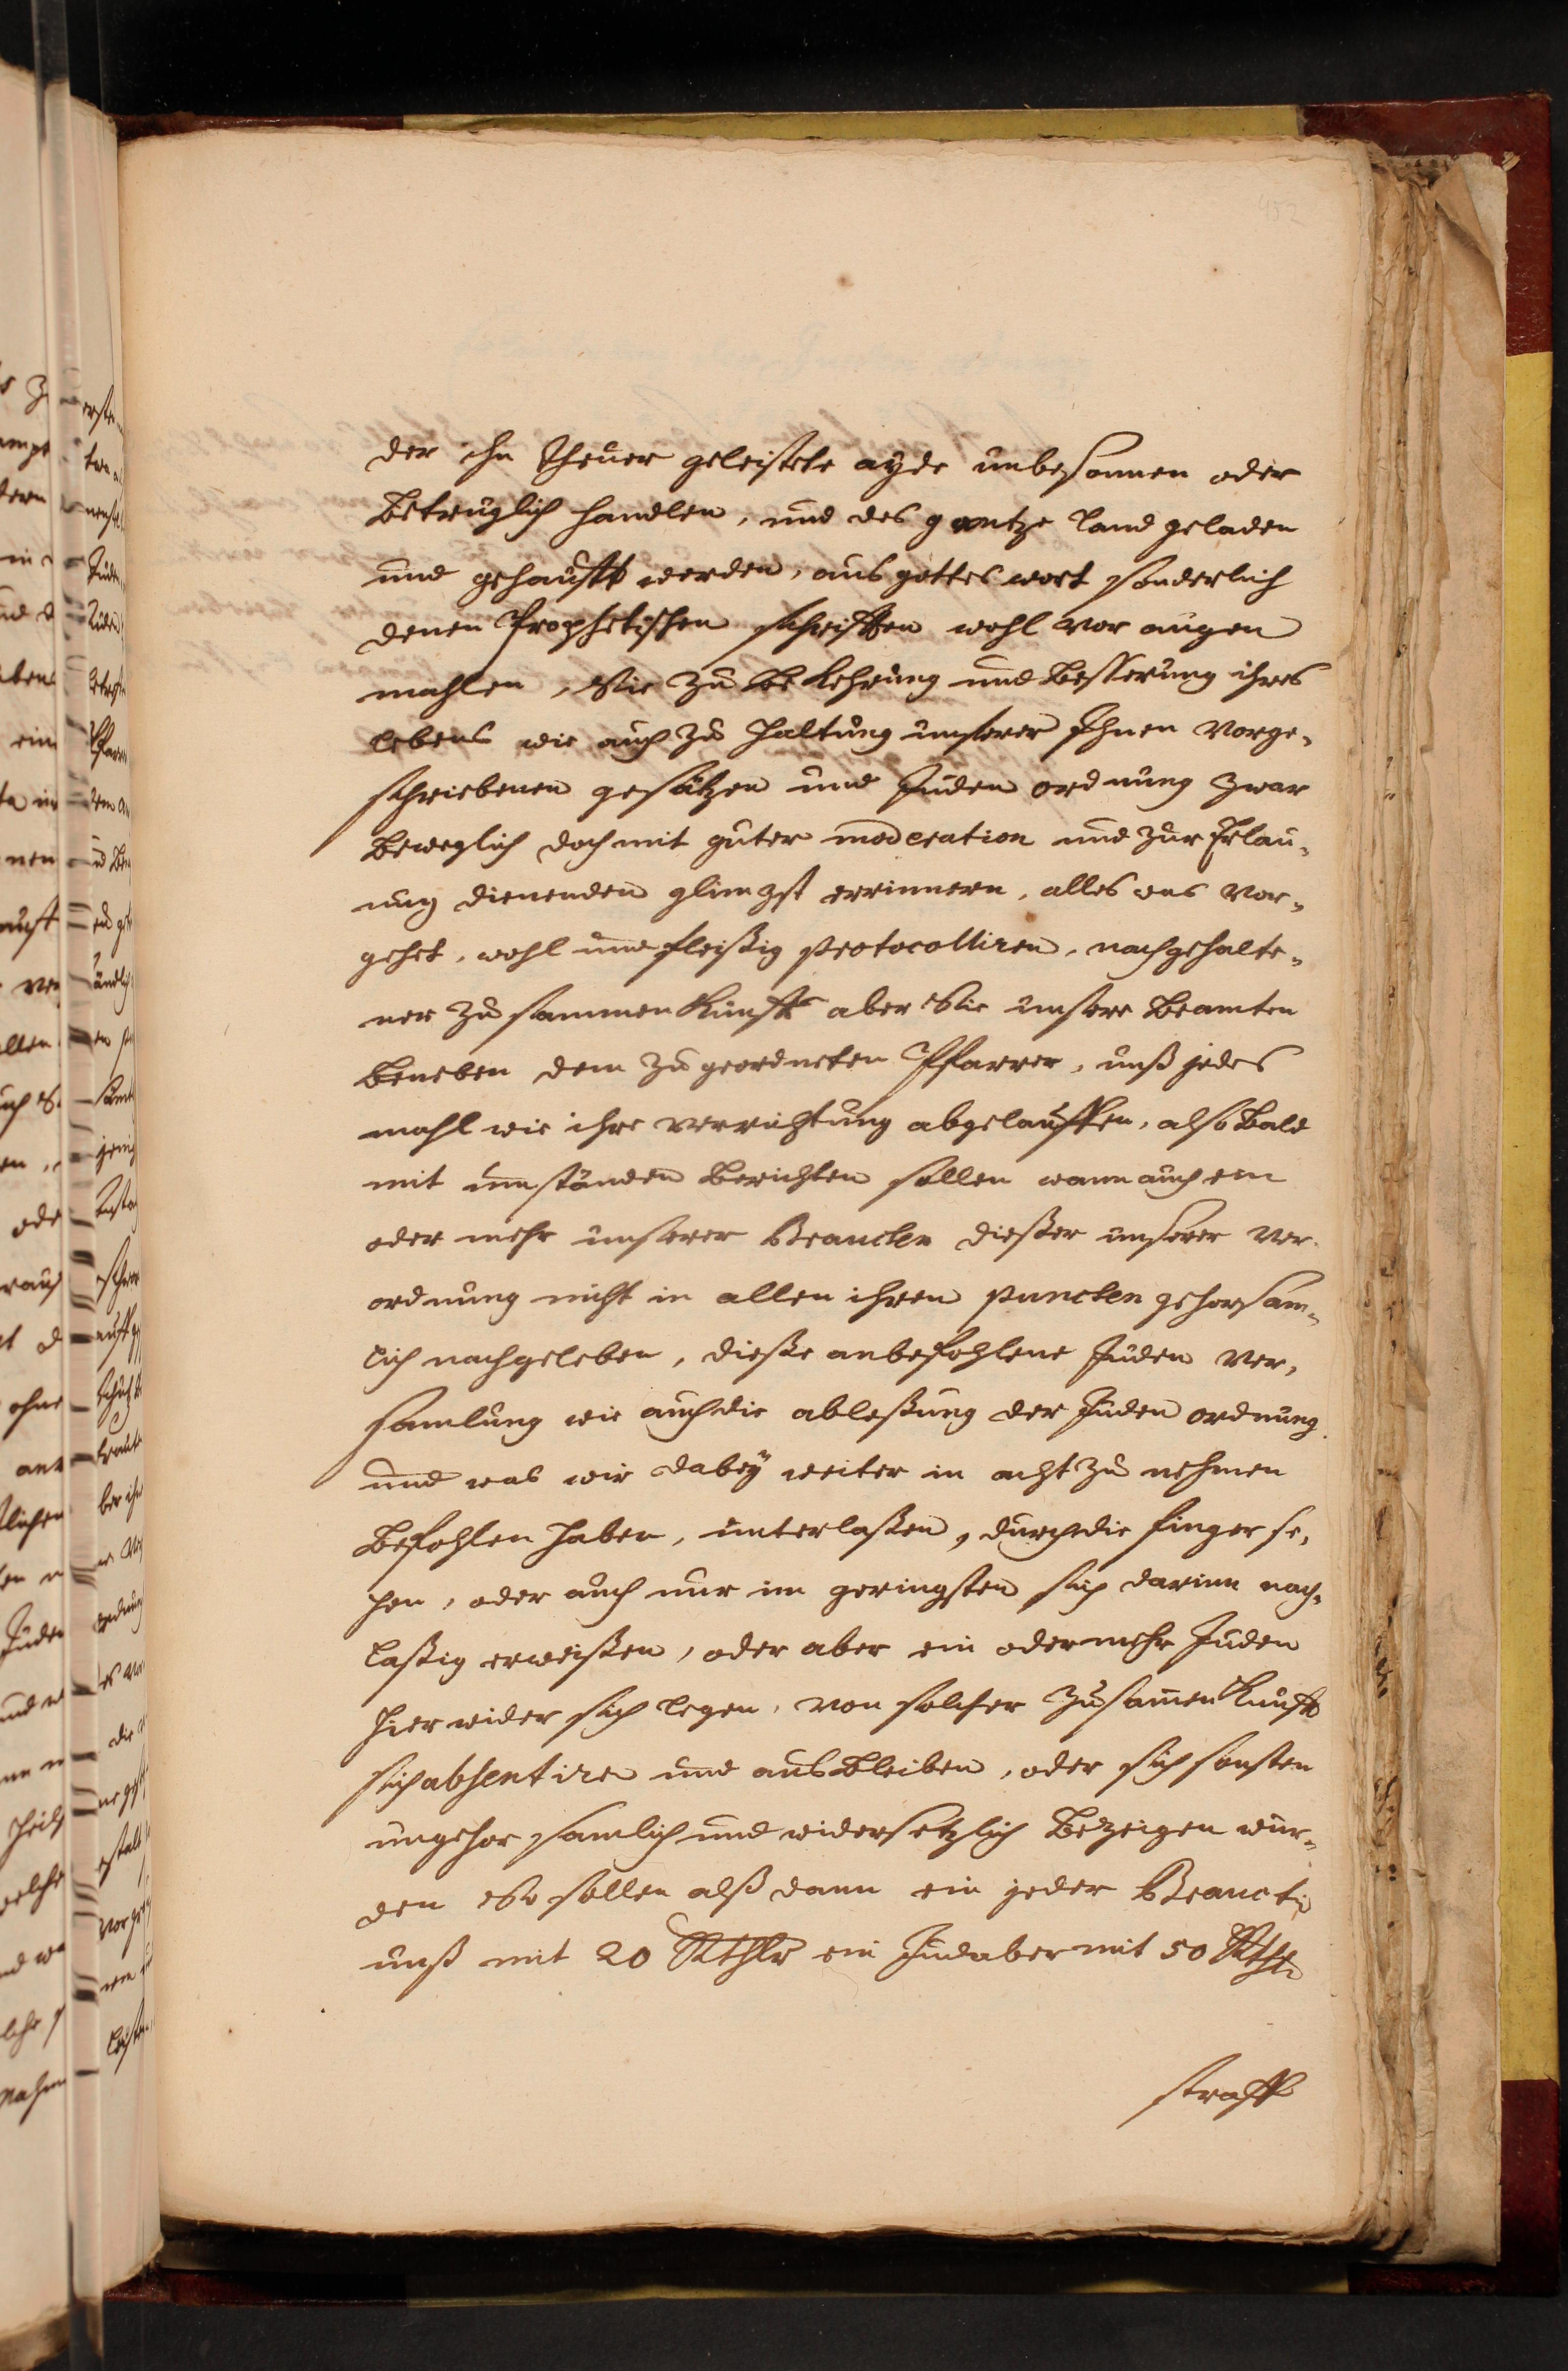 452
der ihn theuer geleistete ayde unbesonnen oder
Betruglich handlen, und des gantze Land geladen
und gehaufft werden, aus gottes wort sonderlich
denen Prophetischen schrifften wohl vor augen
mahlen, Sie zu bekehrung und Besserung ihres
Lebens wie auch zu Haltung unserer Ihnen Vorge-
schriebenen gesätzen und Juden ordnung zwar
Beweglich doch mit guter moderation und zur Erbau-
ung dienenden glimpff errinnern, alles was vor-
gehet, wohl und fleißig protocolliren, nachgehalte-
ner zusammenkunfft aber Sie unsere Beamten
Beneben dem zu geordneten Pfarrer, unß jedes
mahl wie ihre verrichtung abgelauffen, also Bald
mit umständen Berichten sollen wann auch ein
oder mehr unserer Beamten dießer unserer Ver-
ordnung nicht in allen ihren puncten gehorsam-
lich nachgeleben, dieße anbefohlene Juden Ver-
samlung wie auch die ableßung der Juden ordnung
und was wir dabey weiter in acht zu nehmen
Befohlen haben, unterlaßen, durch die finger se-
hen, oder auch nur im geringsten sich darinn nach-
laßig erweißen, oder aber ein oder mehr Juden
hier wider sich legen, von solcher Zusamenkunfft
sich absentiren und ausbleiben, oder sich sonsten
ungehorsamlich und widersetzlich Bezeigen wur-
den So sollen alß dann ein jeder Beamter
unß mit 20 Rthlr ein Jud aber mit 50 Rthlr
straff